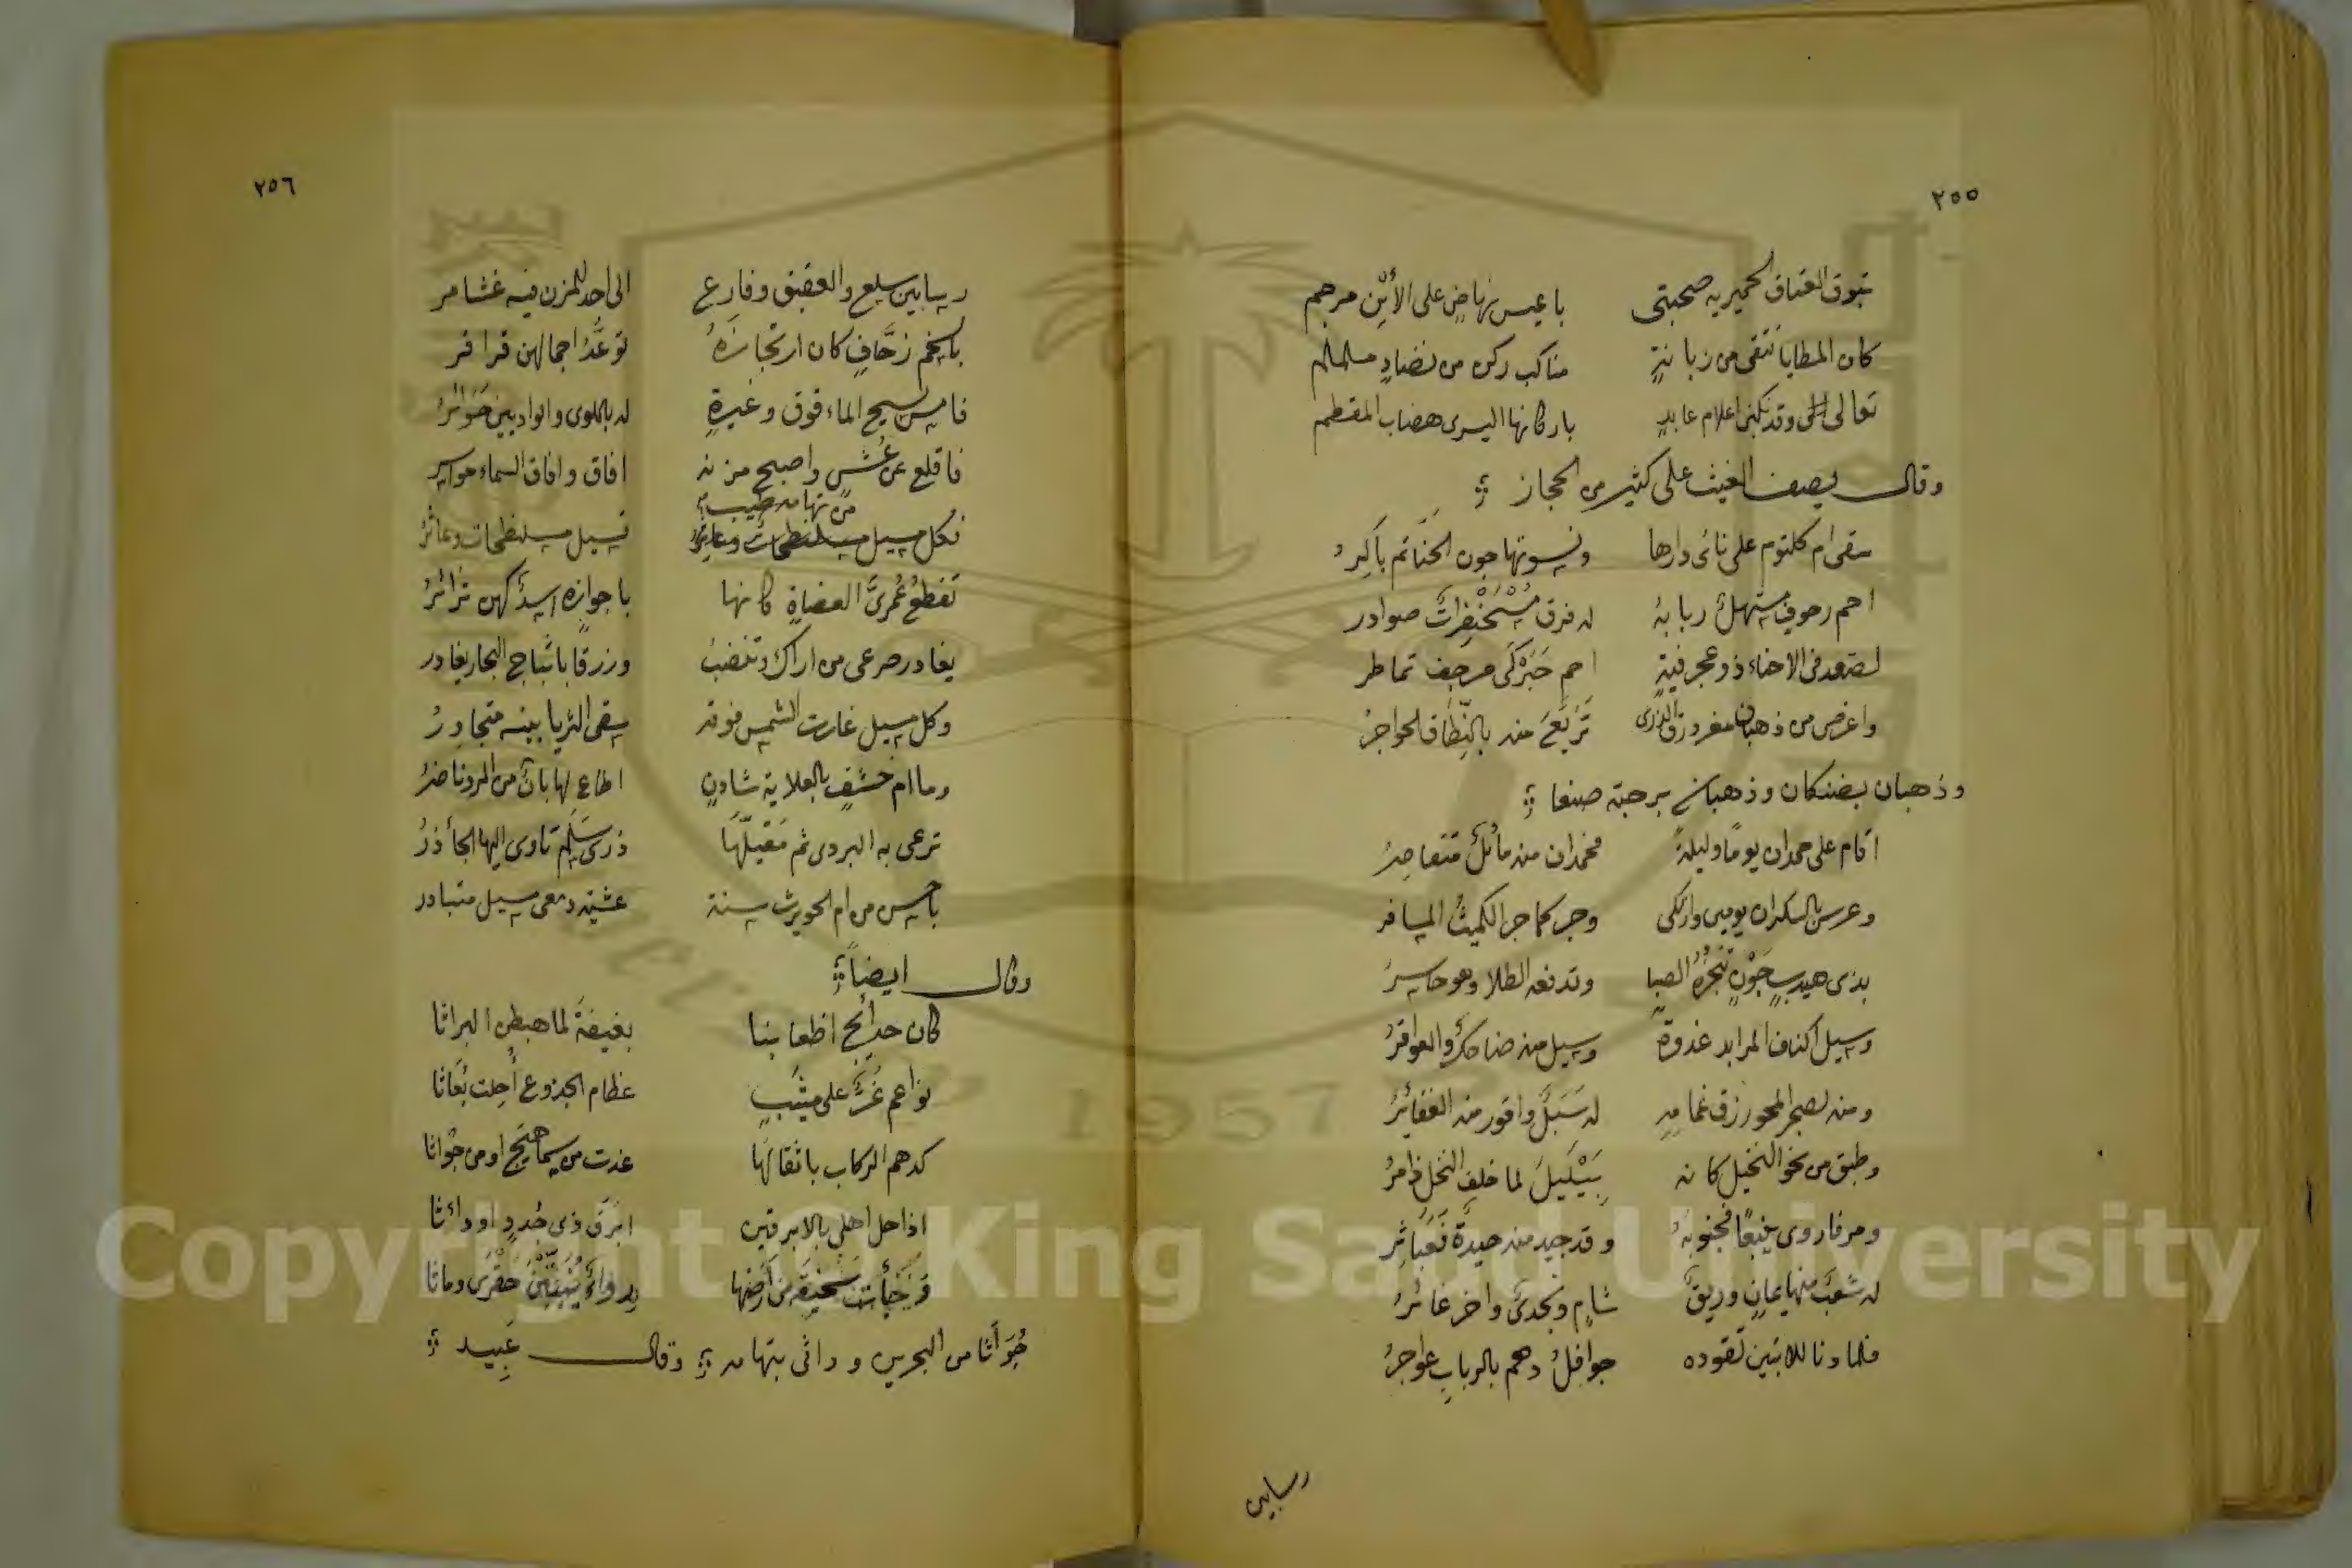 ٢٥٥
تبوق العتاق الحميريه صحبتى باعيس نهاض على الأين مرجم
كان المطايا تتقى من زبانة مناكب ركن من نضاد ململم
تعالى وقد نكبن اعلام عابد باركانها اليسرى هضاب المقطم
وقال يصف الغيث على كثير من الحجاز
سقى ام كلثوم على نائ دارها ونسوتها جون الحنا ثم باكر
احم رحوف مستهل ربابه له فرق مسحنفرات صوادر
تصعد فى الاحناء ذو عجرفية احم حبركى مرجف تماطر
واعرض من ذهبان مغرورق الذرى تربع منه بالنطاق الحواجز
وذهبان بضنكان وذهبان برحبة صنعا
اقام على جمدان يوما وليلة فجمدان منه مائل متقاصر
وعرس بالسكران يومين وارتكى وجر كما جر المكيث المسافر
بذى هيدب جون تنجزه الصبا وتدفعه الطلا وهو حاسر
وسيل اكناف المرابد غدوة وسيل منه ضاحك والعواقر
ومنه بصحر المحو زرق غمامه له سبل واقور منه الغفائر
وطبق من نحو النخيل كانه بيليل لما خلف النخل ذامر
ومر فاروى ينبعا فجنوبه وقد جيد منه حيدة فعباثر
له شعب منها يمان وريق شام ونجدى واخر غائر
فلما دنا للابتين تقوده جوافل دهم بالرباب عواجر
رسا بين
٢٥٦
رسا بين سلع والعقيق وفارع الى احد للمزن فيه غشامر
باسخم زحاف كان ارتجازه توعد اجمال لهن قراقر
فامسى يسح الماء فوق وعيرة له باللوى والواديين حوائر
فاقلع عن عش واصبح مزنه افاق وافاق السماء حواسر
من تهامة طيب
فكل مسيل تسيل به مسلنطحات وعاثر
تقطع عمرى العضاة كانها باجوازه اسد لهن تزائر
يغادر صرعى من اراك وتنضب وزرقا باثباج البحار يغادر
وكل مسيل غارت الشمس فوقه سقى الثريا بينه متجاور
وما ام خشف بالعلاية شادن اطاع لها بان من المرد ناضر
ترعى به البردين ثم مقيلها ذرى سلم تاوى اليها الجأذر
باحسن من ام الحويرث سنة عشية دمعى مسبل متبادر
وقال ايضاً
كان حدائج اظعاننا بغيقة لما هبطن البراثا
نواعم غر على ميثب عظام الجذوع أحلت بعاثا
كدهم الركاب باثقالها غدت من سماهيج او من جواثا
اذا حل اهلى بالابرقين ابرق ذى جدد او دءاثا
جواثا من البحرين ودءاثى بتهامه وقال عبيد